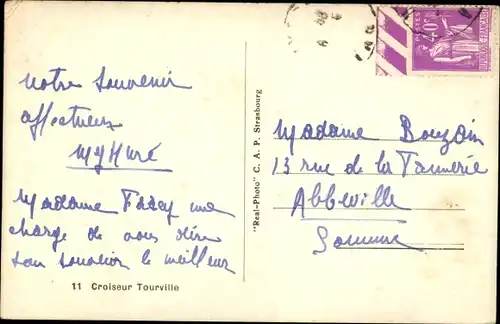 Notre souvenir
affectueux
Madame
me
charge de vous dire
son souvenir le meilleur
11 Croiseur Tourville
"Real-Photo" C. A. P. Strasbourg
POSTES
40c
REPUBLIQUE FRANÇAISE
Madame Bouzain
13 rue de la Tannerie
Abbeville
Somme